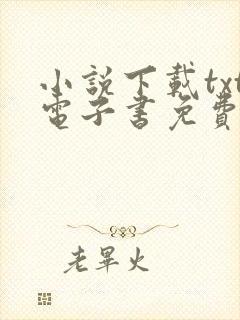 小説下載txt
電子書免費
老畢火